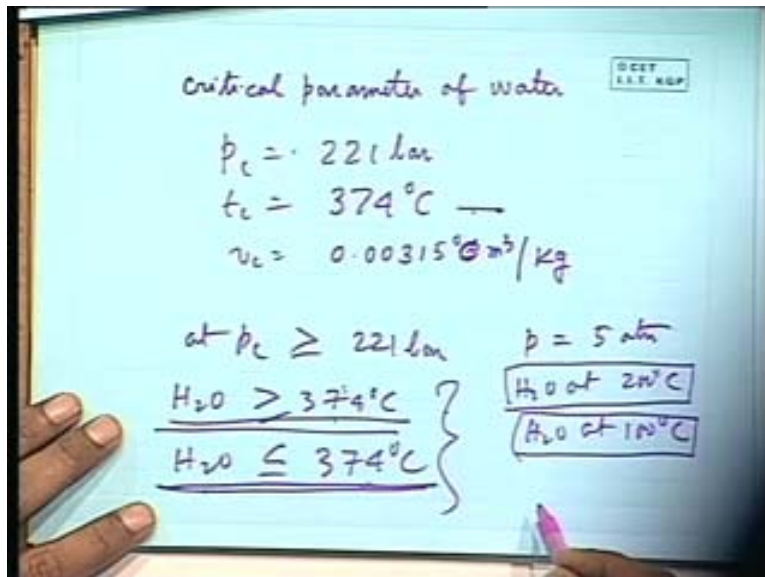 critical parameter of water
© CET
I.I.T. KGP
p_c = 221 bar
t_c = 374°C —
v_c = 0.00315 m³/kg
at p_c ≥ 221 bar
H₂O > 374°C
H₂O ≤ 374°C
p = 5 atm
H₂O at 200°C
H₂O at 100°C